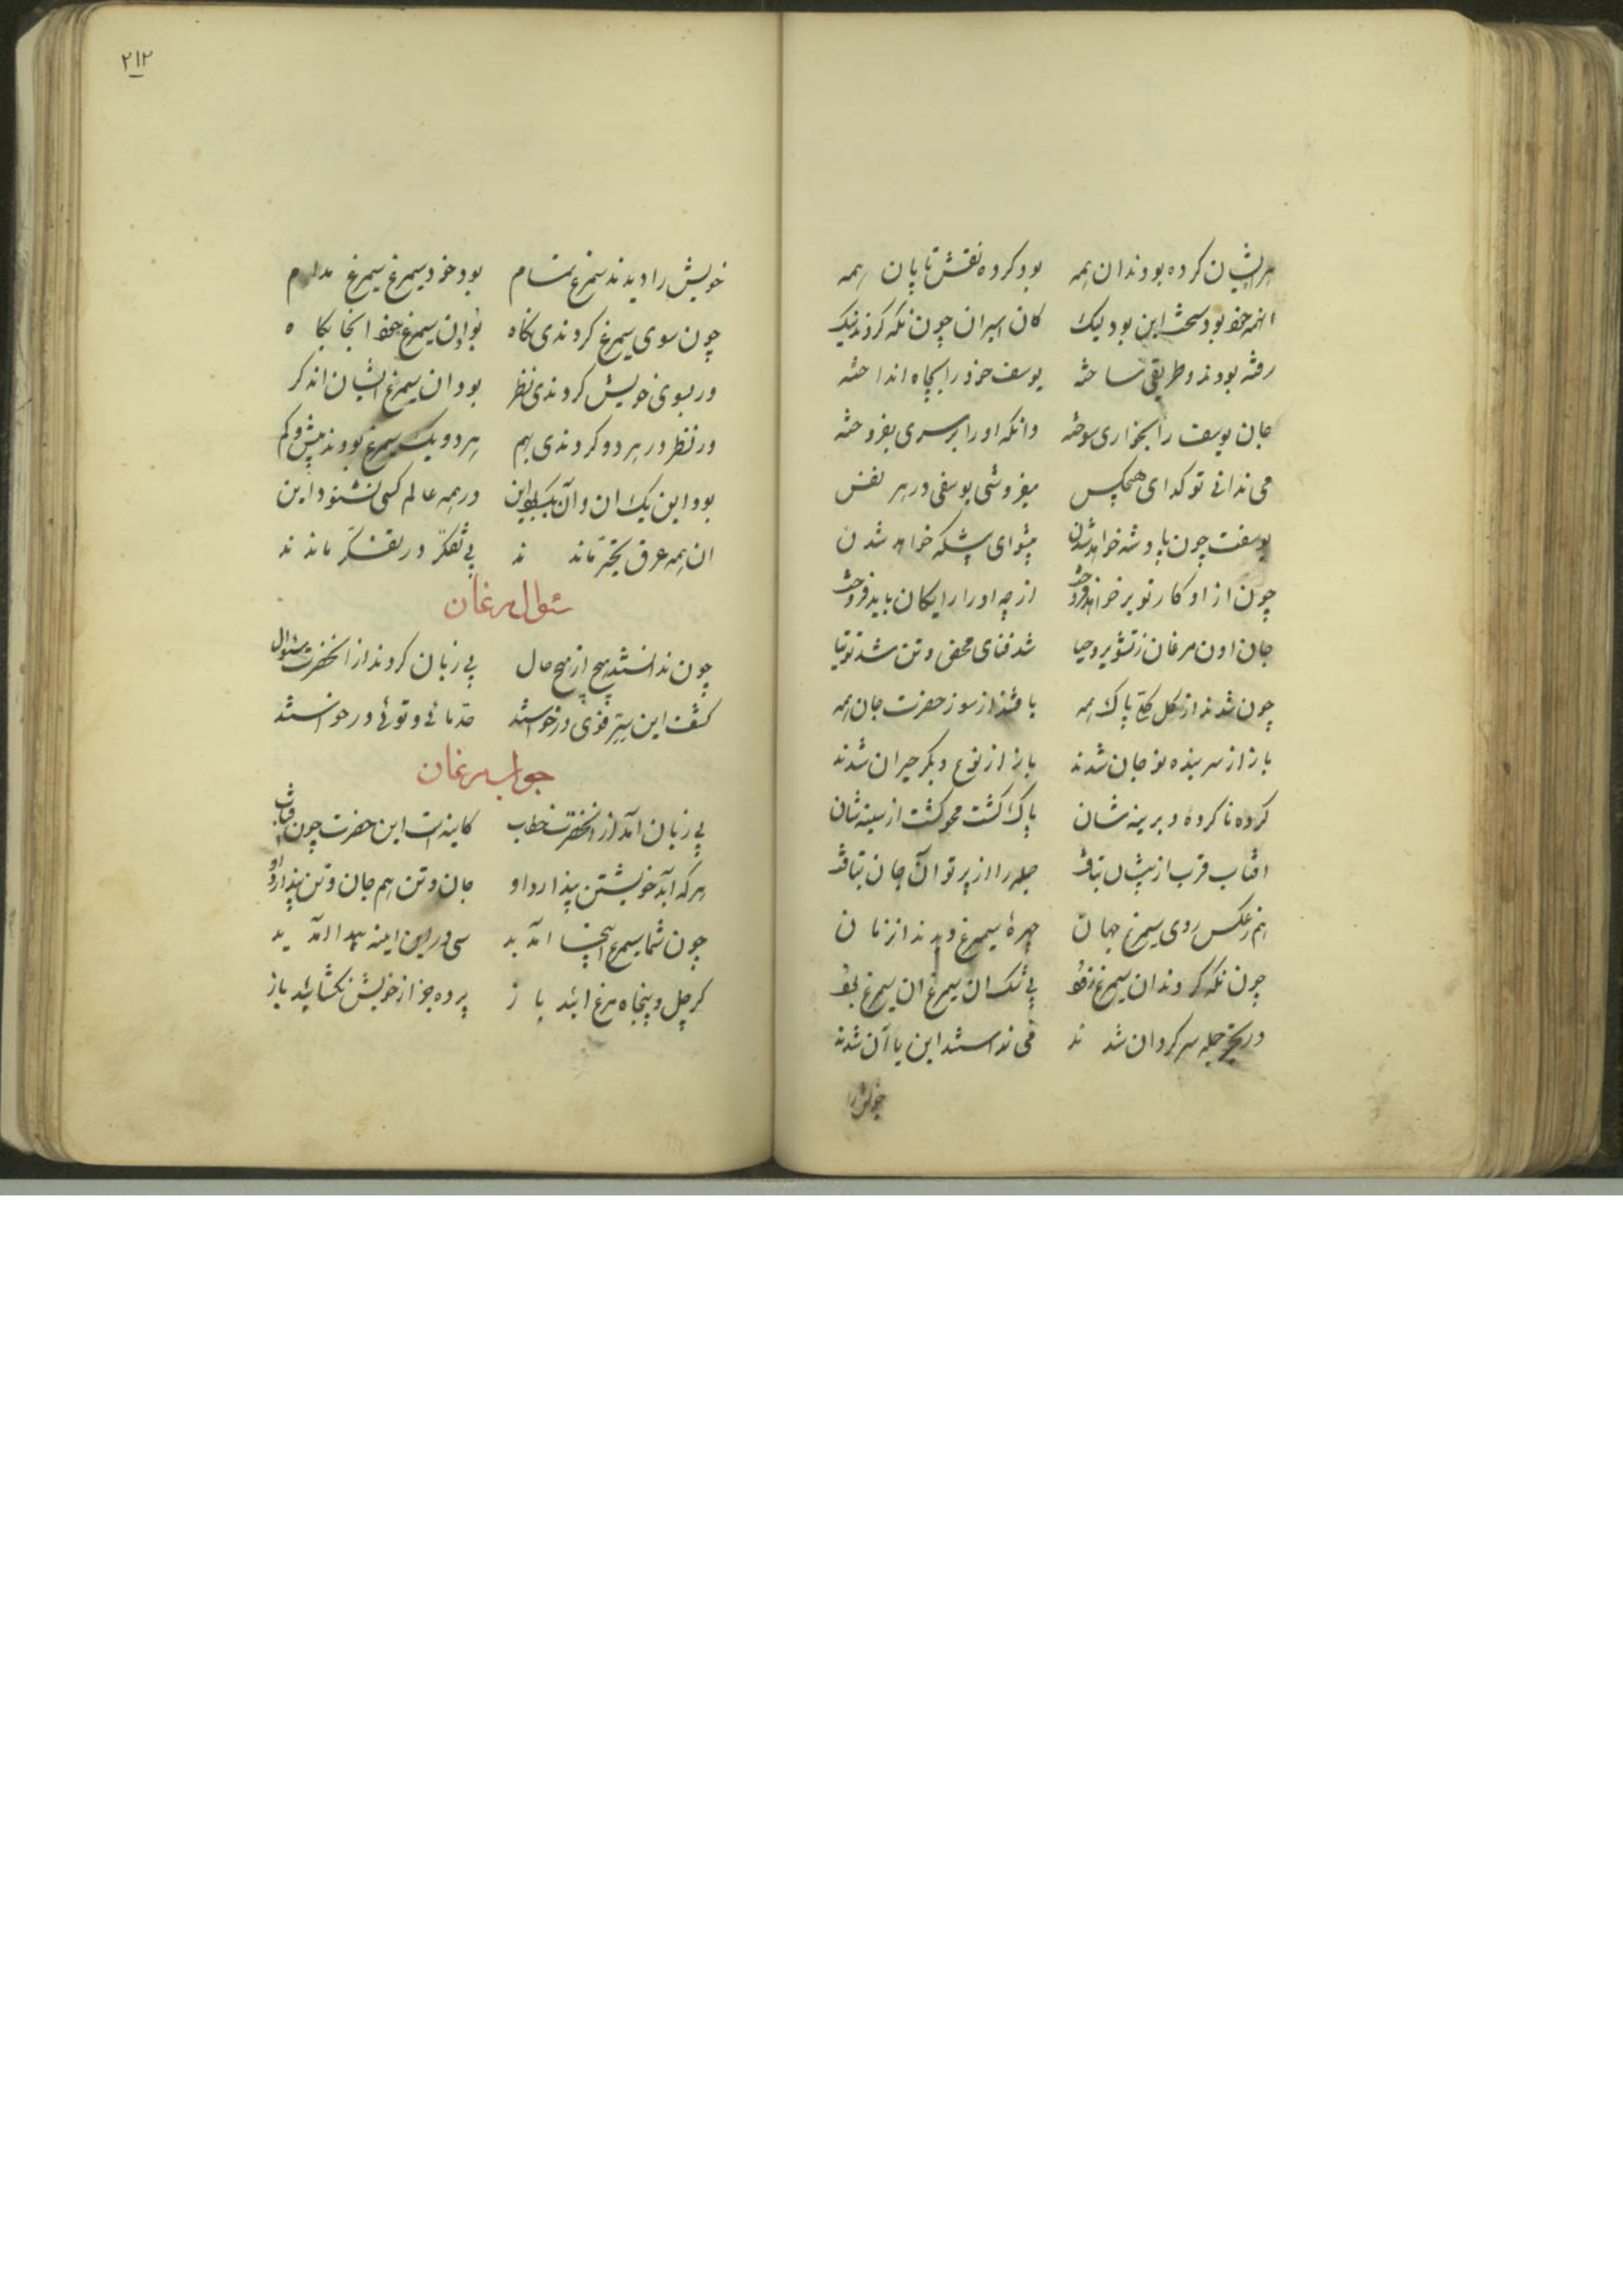 هرچ ایشان کرده بودند ان همه بود کرده نقش تا پایان همه
انهمه خود بود سخت این بود لیک کان اسیران چون نکه کردند نیک
رفته بودند و طریقی ساخته یوسف خود را بچاه انداخته
جان یوسف را بخواری سوخته وانکه او را بر سری بفروخته
می ندانی تو کدای هیچکس میفروشی یوسفی در هر نفس
یوسفت چون پادشه خواهد شدن پیشوای پیشکه خواهد شدن
چون از او کار تو بر خواهد فروخت از چه او را رایکان باید فروخت
جان اون مرغان ز تشویر و حیا شد فنای محض و تن شد توتیا
چون شدند از کل کل پاک همه یافتند از سوز حضرت جان همه
باز از سر بنده نو جان شدند باز از نوع دیکر حیران شدند
کرده ناکرده دیرینه شان پاک کشت محو کشت از سینه شان
افتاب قرب از پیشان بتافت جمله را از پرتو آن جان بتافت
هم ز عکس روی سیمرغ جهان چهرهٔ سیمرغ دیدند از زمان
چون نکه کردند ان سیمرغ زود بی شک ان سیمرغ ان سیمرغ بود
در تحیر جمله سرکردان شدند می ندانستند این یا آن شدند
خویش را
۲۱۲
خویش را دیدند سیمرغ تمام بود خود سیمرغ سیمرغ مدام
چون سوی سیمرغ کردندی نکاه بود ان سیمرغ خود انجایکاه
ور بسوی خویش کردندی نظر بود ان سیمرغ ایشان اند کر
ور نظر در هر دو کردندی بهم هر دو یک سیمرغ بودند بیش و کم
بود این یک ان و آن یک بود این در همه عالم کسی نشنود این
ان همه غرق تحیر ماندند بی تفکر در تفکر ماندند
سئوال مرغان
چون ندانستند هیچ از هیچ حال بی زبان کردند از انحضرت سئوال
کشف این سر قوی درخواستند حل مائی و توئی درخواستند
جواب مرغان
بی زبان آمد از انحضرت خطاب کاینه است این حضرت چون افتاب
هر که آید خویشتن پندارد او جان و تن هم جان و تن پندارد او
چون شما سیمرغ اینجا امدید سی در این اینه پیدا امدید
کر چل و پنجاه مرغ ائید باز پرده جز از خویش نکشائید باز